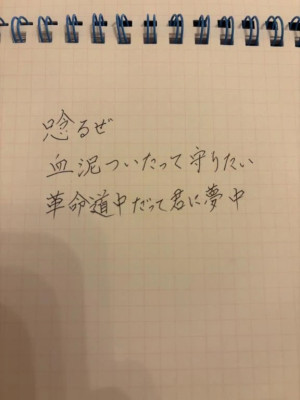 唸るぜ
血泥ついたって守りたい
革命道中だって君に夢中